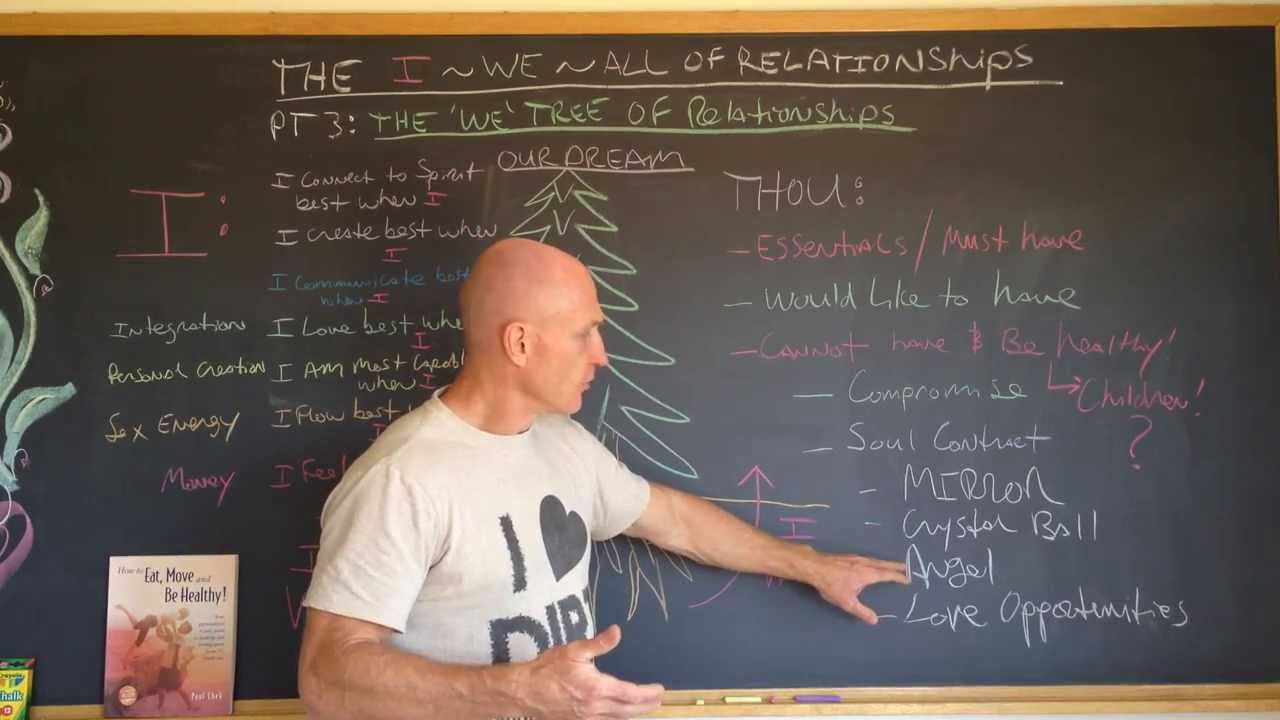 THE I ~ WE ~ ALL OF RELATIONShips
PT 3: THE 'WE' TREE OF Relationships
OUR DREAM
I:
I Connect to Spirit
best when I
I create best when
I
I Communicate best
when I
Integration
I Love best whe
I
Personal Creation
I AM most Capabl
when I
Sex Energy
I Flow best
Money
I Feel
THOU:
- ESSENTIALS / Must have
- Would Like to have
- CANNOT have & Be healthy!
→ Children!
?
- Compromise
- Soul Contract
- MIRROR
- Crystal Ball
Angel
- Love Opportunities
I
I
How to Eat, Move and
Be Healthy!
Paul Chek
I ♥
DIR
Crayola
Chalk
12